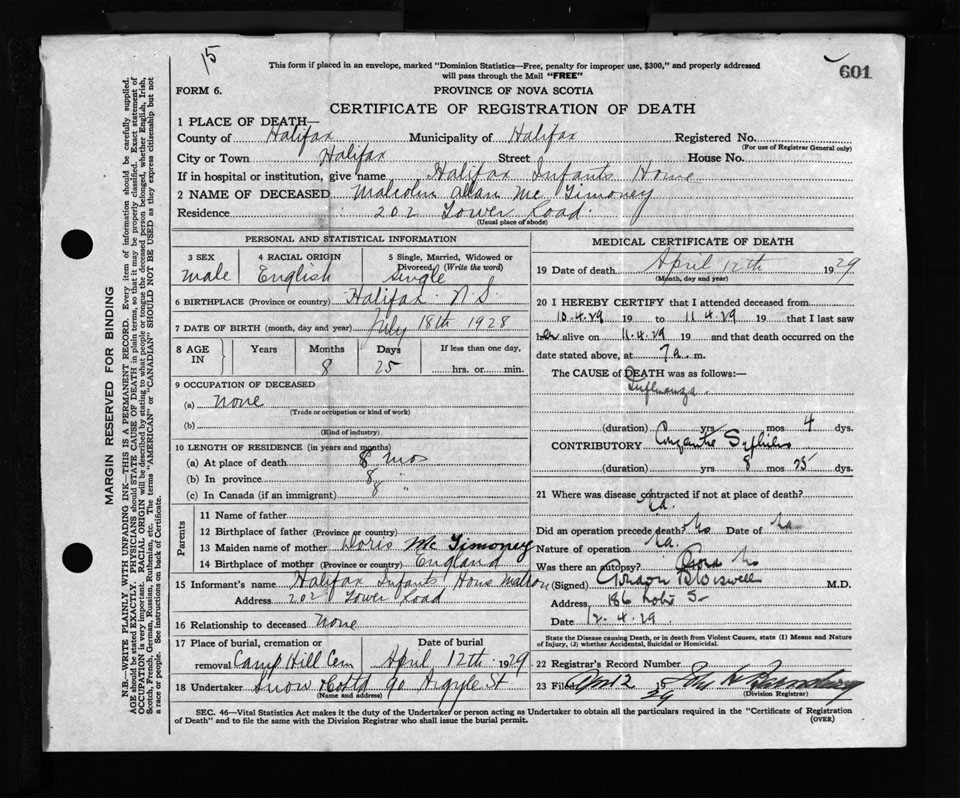 15
This form if placed in an envelope, marked "Dominion Statistics—Free, penalty for improper use, $300," and properly addressed
will pass through the Mail "FREE"
601
FORM 6.
PROVINCE OF NOVA SCOTIA
CERTIFICATE OF REGISTRATION OF DEATH
1 PLACE OF DEATH—
County of Halifax Municipality of Halifax Registered No.
(For use of Registrar General only)
City or Town Halifax Street House No.
If in hospital or institution, give name Halifax Infants Home
2 NAME OF DECEASED Malcolm Allan Mc Timoney
Residence 202 Tower Road.
(Usual place of abode)
PERSONAL AND STATISTICAL INFORMATION
3 SEX 4 RACIAL ORIGIN 5 Single, Married, Widowed or
Divorced. (Write the word)
male English Single
6 BIRTHPLACE (Province or country) Halifax N.S.
7 DATE OF BIRTH (month, day and year) July 18th 1928
8 AGE IN Years Months Days If less than one day,
8 25 hrs. or min.
9 OCCUPATION OF DECEASED
(a) None
(Trade or occupation or kind of work)
(b)
(Kind of industry)
10 LENGTH OF RESIDENCE (in years and months)
(a) At place of death 8 mos
(b) In province 8 "
(c) In Canada (if an immigrant) 8
Parents
11 Name of father
12 Birthplace of father (Province or country)
13 Maiden name of mother Doris Mc Timoney
14 Birthplace of mother (Province or country) England
15 Informant's name Halifax Infants Home Matron
Address 202 Tower Road
16 Relationship to deceased None
17 Place of burial, cremation or Date of burial
removal Camp Hill Cem April 12th 1929
18 Undertaker Snow & Co Ltd 90 Argyle St
(Name and address)
MEDICAL CERTIFICATE OF DEATH
19 Date of death April 12th 1929
(Month, day and year)
20 I HEREBY CERTIFY that I attended deceased from
10.4.29 19 to 11.4.29 19 that I last saw
alive on 11.4.29 19 and that death occurred on the
date stated above, at 7 a. m.
The CAUSE OF DEATH was as follows:—
Influenza.
(duration) yrs mos 4 dys.
CONTRIBUTORY Syphilis
(duration) yrs 8 mos 25 dys.
21 Where was disease contracted if not at place of death?
Did an operation precede death? No Date of na
Nature of operation na.
Was there an autopsy? No
(Signed) M.D.
Address 186
Date 12.4.29.
State the Disease causing Death, or in death from Violent Causes, state (1) Means and Nature
of Injury, (2) whether Accidental, Suicidal or Homicidal.
22 Registrar's Record Number
23 Filed Apr 12 1929
(Division Registrar)
SEC. 46—Vital Statistics Act makes it the duty of the Undertaker or person acting as Undertaker to obtain all the particulars required in the "Certificate of Registration
of Death" and to file the same with the Division Registrar who shall issue the burial permit.
(OVER)
MARGIN RESERVED FOR BINDING
N.B.—WRITE PLAINLY WITH UNFADING INK—THIS IS A PERMANENT RECORD. Every item of information should be carefully supplied.
AGE should be stated EXACTLY. PHYSICIANS should STATE CAUSE OF DEATH in plain terms, so that it may be properly classified. Exact statement of
OCCUPATION is very important. RACIAL ORIGIN will be described by stating to what people or tongue the deceased person belonged, whether English, Irish,
Scotch, French, German, Russian, Ruthenian, etc. The terms "AMERICAN" or "CANADIAN" SHOULD NOT BE USED as they express citizenship but not
a race or people. See instructions on back of Certificate.